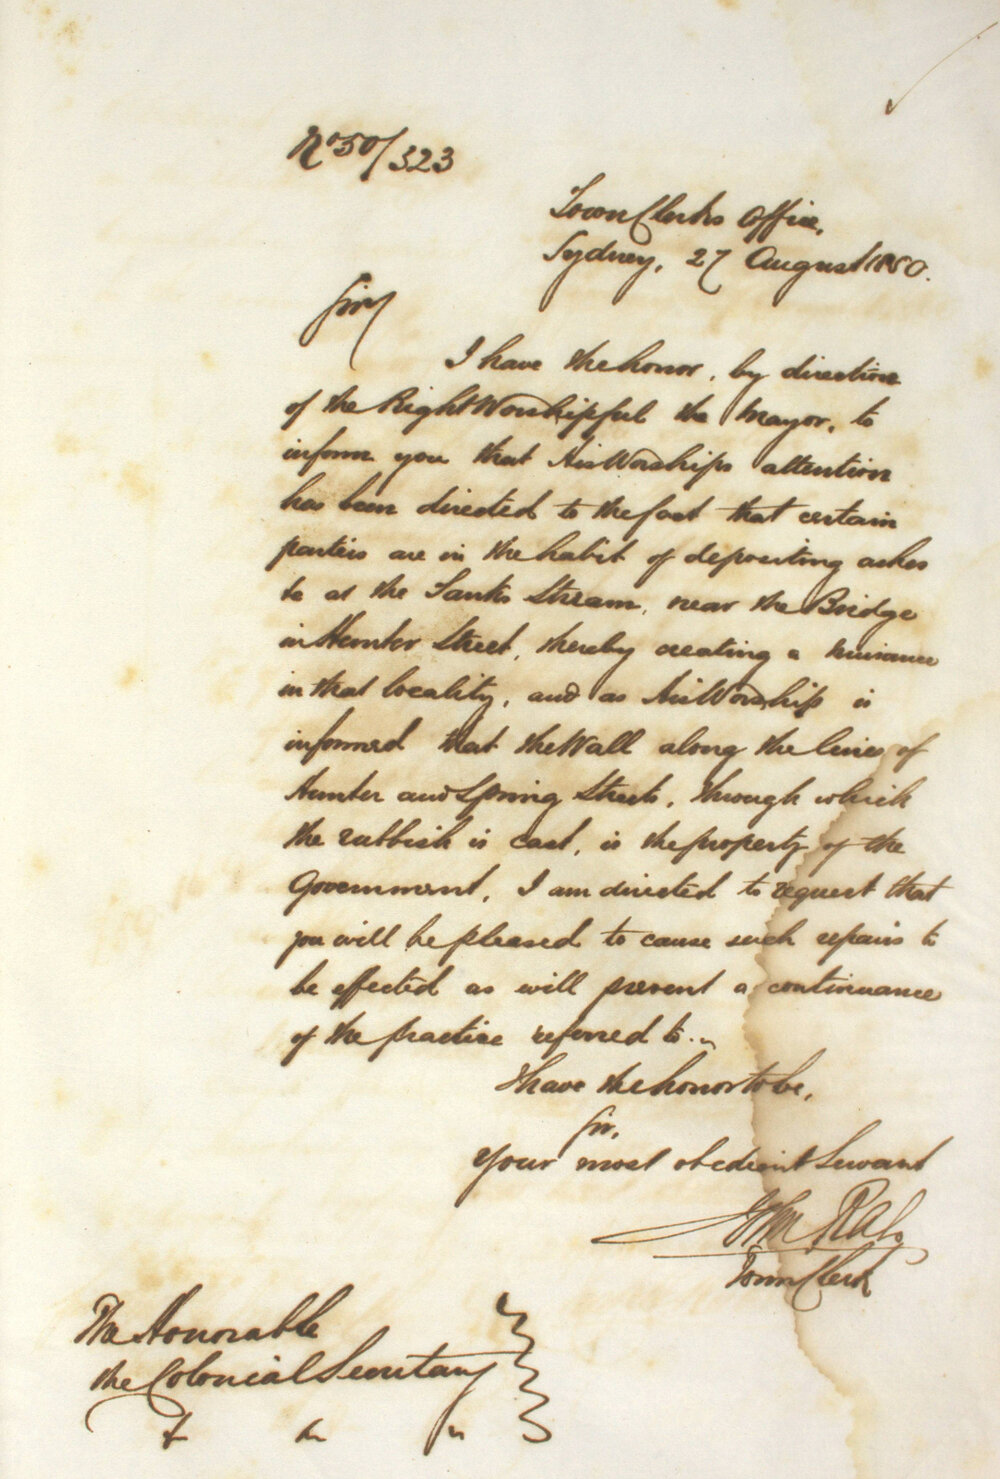 No 50/323
Town Clerks Office,
Sydney, 27 August 1850.
Sir
I have the honor, by direction
of the Right Worshipful the Mayor, to
inform you that His Worships attention
has been directed to the fact that certain
parties are in the habit of depositing ashes
&c at the Tanks Stream, near the Bridge
in Hunter Street, thereby creating a nuisance
in that locality, and as His Worship is
informed that the Wall along the lines of
Hunter and Spring Streets, through which
the rubbish is cast, is the property of the
Government, I am directed to request that
you will be pleased to cause such repairs to
be effected as will prevent a continuance
of the practice referred to.
I have the honor to be,
Sir,
Your most obedient Servant
John Rae
Town Clerk
The Honorable
the Colonial Secretary